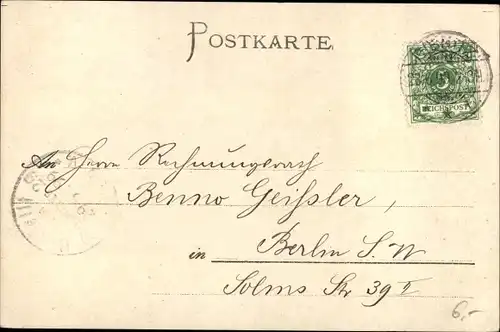 POSTKARTE.
5
REICHSPOST
An Herrn Rechnungsrath
Benno Geissler,
in Berlin S. W
Solms Str 39 I
6,-